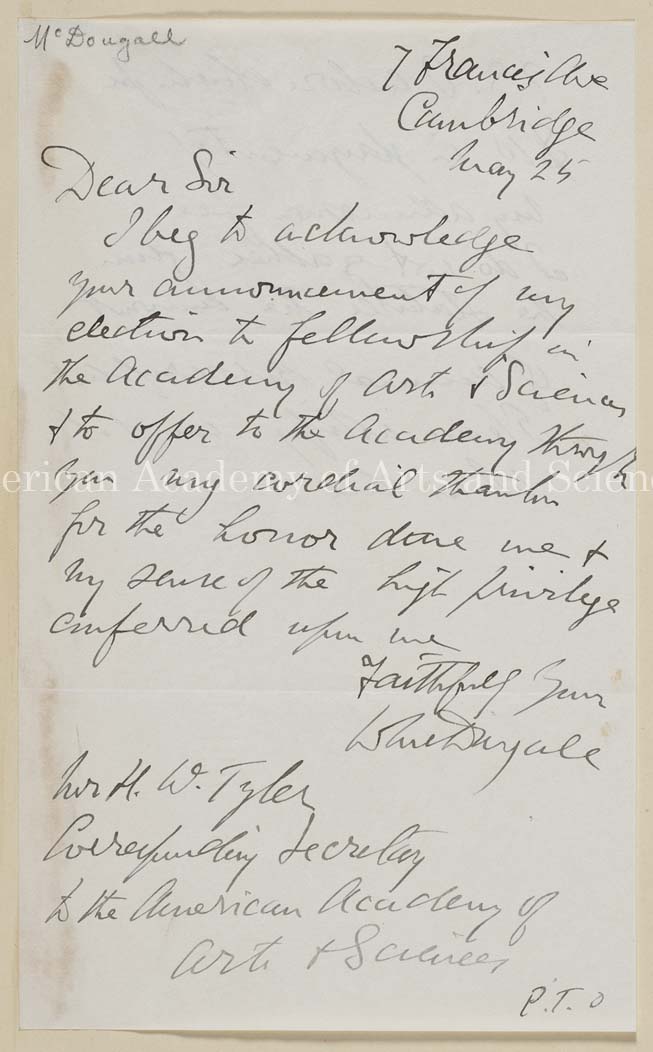 McDougall
7 Francis Ave
Cambridge
May 25
Dear Sir
I beg to acknowledge
your announcement of my
election to fellowship in
the Academy of Arts & Sciences
& to offer to the Academy through
American Academy of Arts and Sciences
you my cordial thanks
for the honor done me &
my sense of the high privilege
conferred upon me
Faithfully Yours
W McDougall
Mr H. W. Tyler
Corresponding Secretary
to the American Academy of
Arts & Sciences
P.T.O